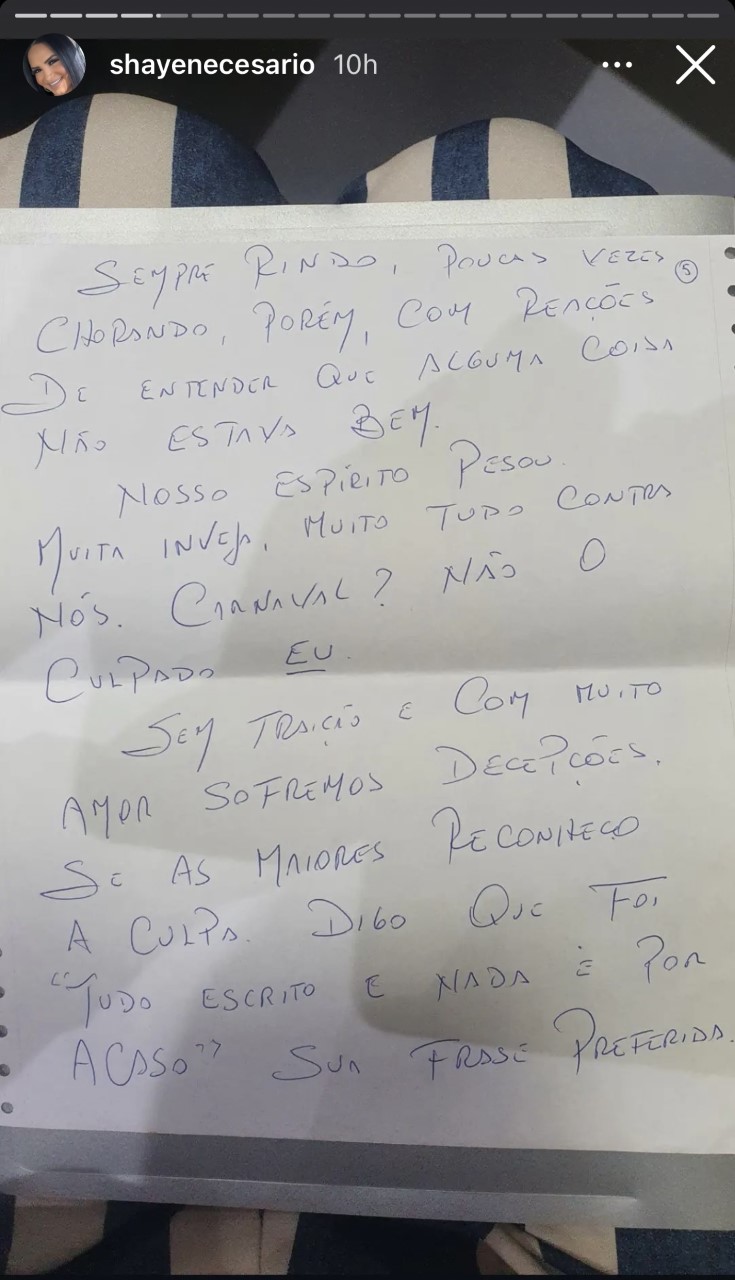 shayenecesario 10h
SEMPRE RINDO, POUCAS VEZES
5
CHORANDO, PORÉM, COM REAÇÕES
DE ENTENDER QUE ALGUMA COISA
NÃO ESTAVA BEM.
NOSSO ESPÍRITO PESOU.
MUITA INVEJA, MUITO TUDO CONTRA
NÓS. CARNAVAL? NÃO O
CULPADO EU.
SEM TRAIÇÃO E COM MUITO
AMOR SOFREMOS DECEPÇÕES.
SE AS MAIORES RECONHEÇO
A CULPA. DIGO QUE FOI
“TUDO ESCRITO E NADA É POR
ACASO” SUA FRASE PREFERIDA.